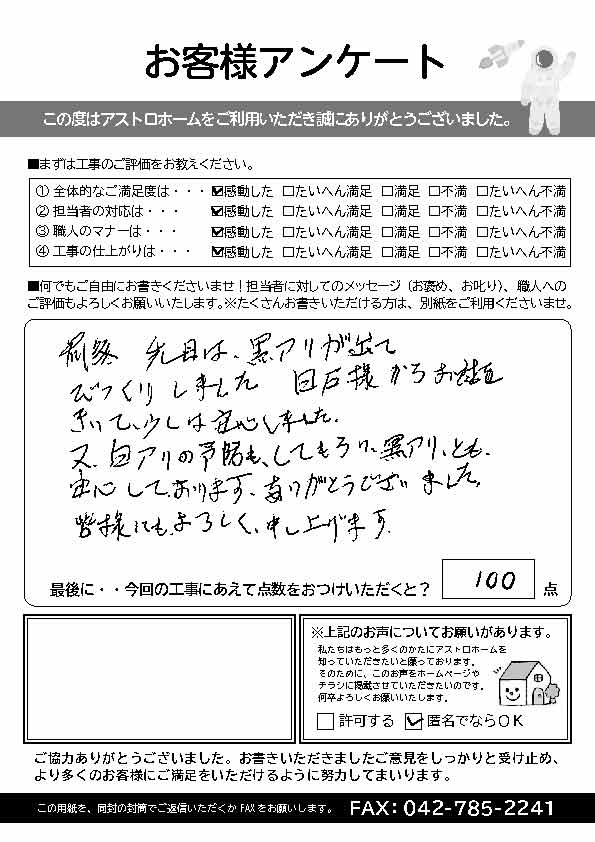 お客様アンケート
この度はアストロホームをご利用いただき誠にありがとうございました。
■まずは工事のご評価をお教えください。
① 全体的なご満足度は・・・ ☑感動した □たいへん満足 □満足 □不満 □たいへん不満
② 担当者の対応は・・・ ☑感動した □たいへん満足 □満足 □不満 □たいへん不満
③ 職人のマナーは・・・ ☑感動した □たいへん満足 □満足 □不満 □たいへん不満
④ 工事の仕上がりは・・・ ☑感動した □たいへん満足 □満足 □不満 □たいへん不満
■何でもご自由にお書きくださいませ！担当者に対してのメッセージ（お褒め、お叱り）、職人への
ご評価もよろしくお願いいたします。※たくさんお書きいただける方は、別紙をご利用くださいませ。
前略 先日は、黒アリが出て
びっくりしました 様からお話を
きいて、少しは安心しました.
又、白アリの予防も、してもろい、黒アリ、とも.
安心しております、ありがとうございました、
皆様にも、よろしく、申し上げます.
最後に・・今回の工事にあえて点数をおつけいただくと？ 100 点
※上記のお声についてお願いがあります。
私たちはもっと多くのかたにアストロホームを
知っていただきたいと願っております。
そのために、このお声をホームページや
チラシに掲載させていただきたいのです。
何卒よろしくお願いいたします。
□許可する ☑匿名でならＯＫ
ご協力ありがとうございました。お書きいただきましたご意見をしっかりと受け止め、
より多くのお客様にご満足をいただけるように努力してまいります。
この用紙を、同封の封筒でご返信いただくか FAX をお願いします。 FAX：042-785-2241